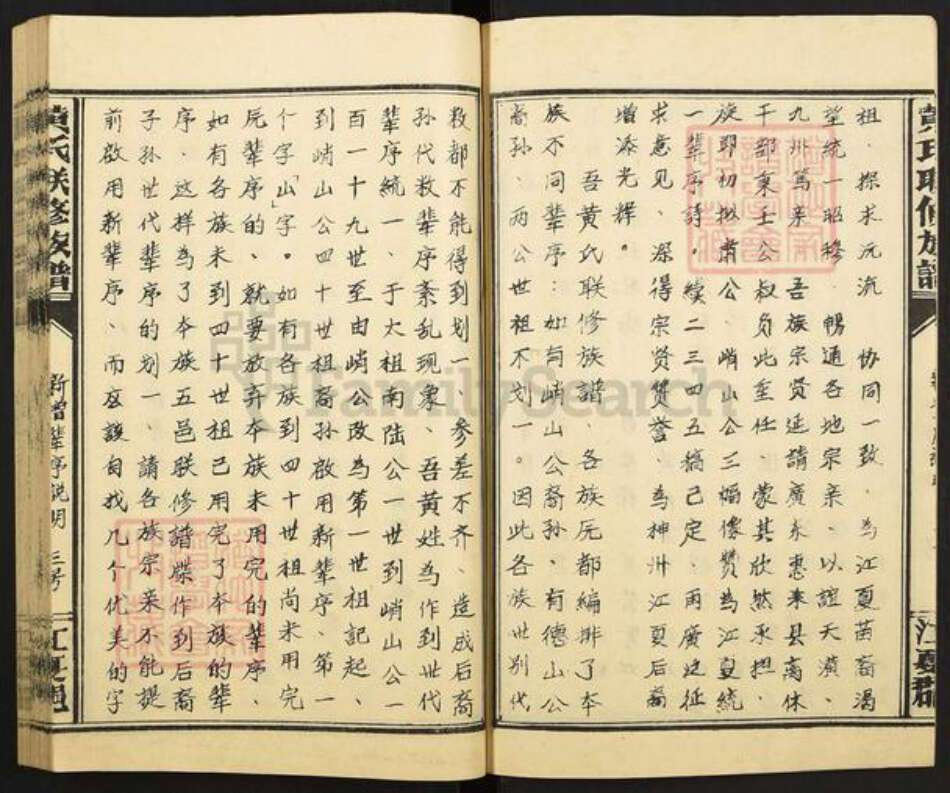 祖、探求沅流 协同一致 为江夏苗裔渴
望统一昭穆 畅通各地宗亲、以谊天潢、
九州笃亲 吾族宗贤延请广东惠来县离休
干部秉士公叔负此圣任、蒙其欣然承担、
旋即初拟肃公、峭山公三幅像赞为江夏统
一辈序诗。续二三四五稿已定 再广泛征
求意见、深得宗贤赞誉、为神州江夏后裔
增添光辉。
吾黄氏联修族谱、各族沅都编排了本
族不同辈序、如有峭山公裔孙、有德山公
裔孙、两公世祖不划一。因此各族世别代
数都不能得到划一、参差不齐、造成后裔
孙代数辈序紊乱现象、吾黄姓为作到世代
辈序统一、于大祖南陆公一世到峭山公一
百一十九世至由峭公改为第一世祖记起、
到峭山公四十世祖裔孙启用新辈序、第一
个字「山」字。如有各族到四十世祖尚未用完
沅辈序的、就要放弃本族未用完的辈序、
如有各族未到四十世祖已用完了本族的辈
序、这样为了本族五邑联修谱牒作到后裔
子孙世代辈序的划一、请各族宗亲不能提
前启用新辈序、而应该自找几个优美的字
黄氏联修族谱
新增辈序说明
三号
江夏郡
黄氏联修族谱
江夏郡
FamilySearch